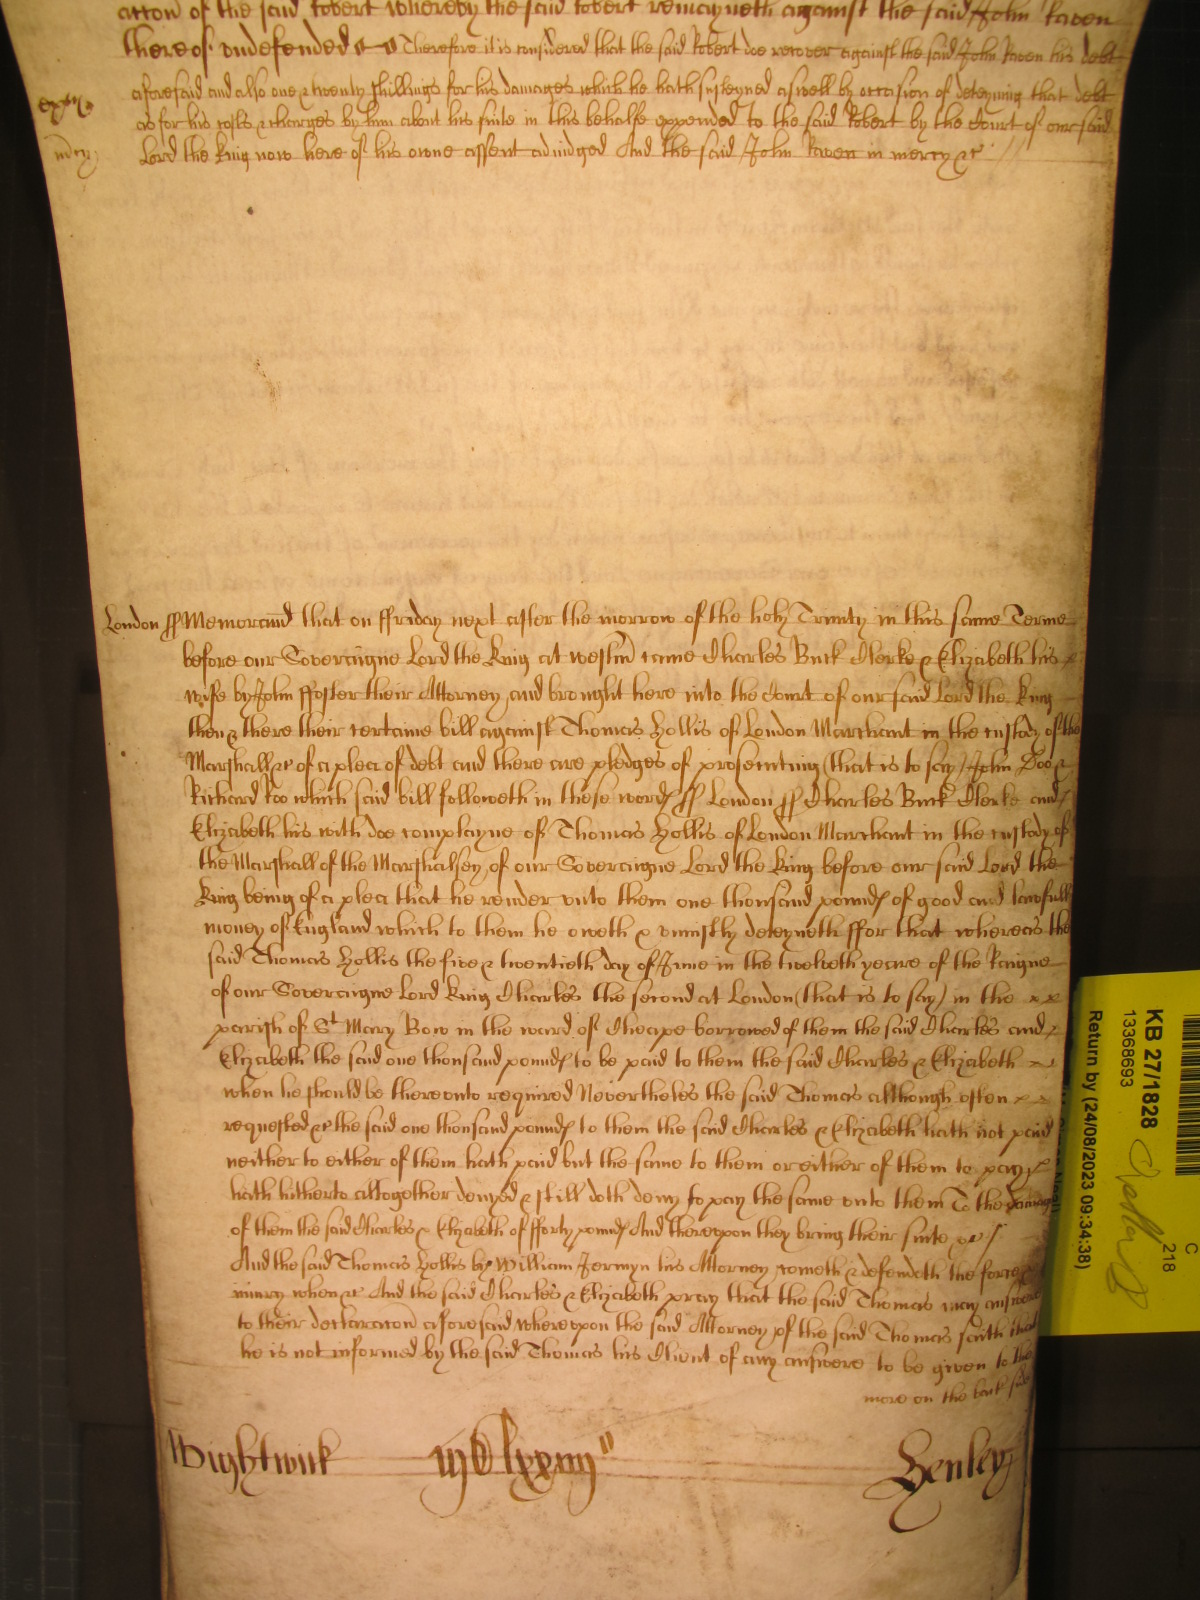 accon of the said Robert whereby the said Robert remayneth against the said John Raven
thereof undefended Therefore it is considered that the said Robert doe recover against the said John Raven his debt
aforesaid and also one & twenty shillings for his damages which he hath susteyned aswell by occasion of deteyning that debt
as for his costs & charges by him about his suite in this behalfe expended to the said Robert by the Court of our said
Lord the King now here of his owne assent adiudged And the said John Raven in mercy &c
mcy
London ss Memorand that on ffriday next after the morrow of the holy Trinity in this same Terme
before our Soveraigne Lord the King at westm came Charles Buck Clerke & Elizabeth his
wife by John ffoster their Attorney and brought here into the Court of our said Lord the King
then & there their certaine bill against Thomas Hollis of London Marchant in the custody of the
Marshall &c of a plea of debt and there are pledges of prosecuting (that is to say) John Doo &
Richard Roo which said bill followeth in these words ss London ss Charles Buck Clerke and
Elizabeth his wife doe complayne of Thomas Hollis of London Marchant in the custody of
the Marshall of the Marshalsey of our Soveraigne Lord the King before our said Lord the
King being of a plea that he render unto them one thousand pounds of good and lawfull
money of England which to them he oweth & uniustly deteyneth ffor that whereas the
said Thomas Hollis the five & twentieth day of June in the twelveth yeare of the Raigne
of our Soveraigne Lord King Charles the second at London (that is to say) in the
parish of St Mary Bow in the ward of Cheape borrowed of them the said Charles and
Elizabeth the said one thousand pounds to be paid to them the said Charles & Elizabeth
when he should be thereunto required Neverthelesse the said Thomas although often
requested &c the said one thousand pounds to them the said Charles & Elizabeth hath not paid
neither to either of them hath paid but the same to them or either of them to pay
hath hitherto altogether denyed & still doth deny to pay the same unto them To the damage
of them the said Charles & Elizabeth of fforty pounds And thereupon they bring their suite &c
And the said Thomas Hollis by William Jermyn his Attorney cometh & defendeth the force &
iniury when &c And the said Charles & Elizabeth pray that the said Thomas may answere
to their declaracon aforesaid whereupon the said Attorney of the said Thomas saith that
he is not informed by the said Thomas his Client of any answere to be given to the
more on the back side
Wightwick
Henley
KB 27/1828
13368693
Return by (24/08/2023 09:34:38)
C
218